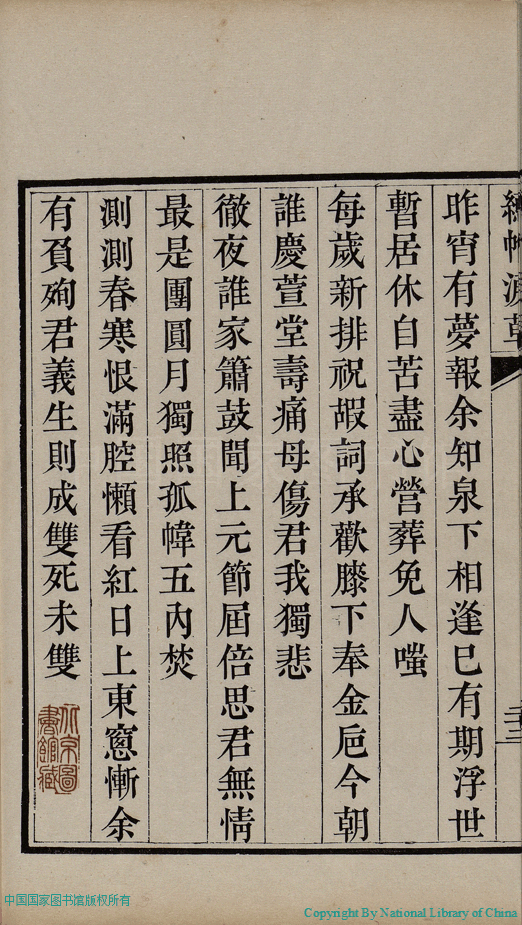 昨宵有夢報余知泉下相逢已有期浮世
暫居休自苦盡心營葬免人嗤
每歲新排祝嘏詞承歡膝下奉金巵今朝
誰慶萱堂壽痛母傷君我獨悲
徹夜誰家簫鼓聞上元節屆倍思君無情
最是團圓月獨照孤幃五內焚
測測春寒恨滿腔懶看紅日上東窻慚余
有負殉君義生則成雙死未雙
北京圖
書館藏
中国国家图书馆版权所有
Copyright By National Library of China